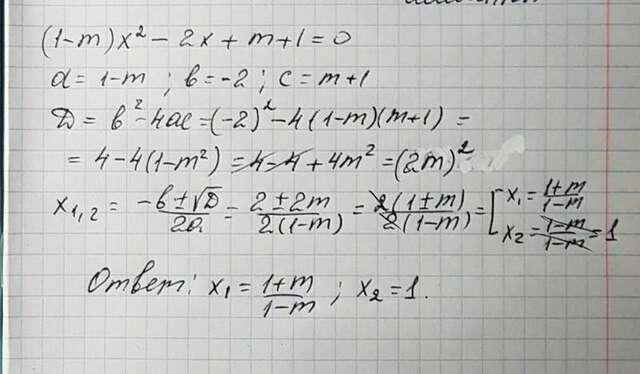 (1-m)x² - 2x + m+1 = 0
a = 1-m ; b = -2 ; c = m+1
D = b² - 4ac = (-2)² - 4(1-m)(m+1) =
= 4 - 4(1-m²) = 4 - 4 + 4m² = (2m)²
x₁,₂ = (-b ± √D)/(2a) = (2 ± 2m)/(2(1-m)) = (2(1±m))/(2(1-m)) = [x₁ = (1+m)/(1-m)
x₂ = (1-m)/(1-m) = 1
Ответ: x₁ = (1+m)/(1-m) ; x₂ = 1.